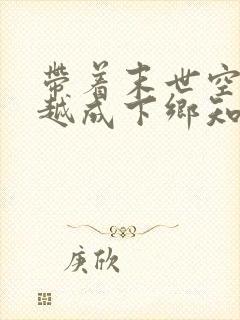 带着末世空
越成下鄉知
庚欣